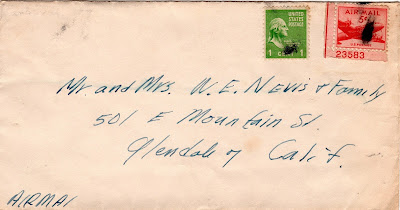 UNITED STATES POSTAGE
1 CENT 1
AIR MAIL
5¢
U.S. POSTAGE
23583
Mr. and Mrs. W. E. Nevis & Family
501 E Mountain St.
Glendale 7 Calif.
AIRMAI